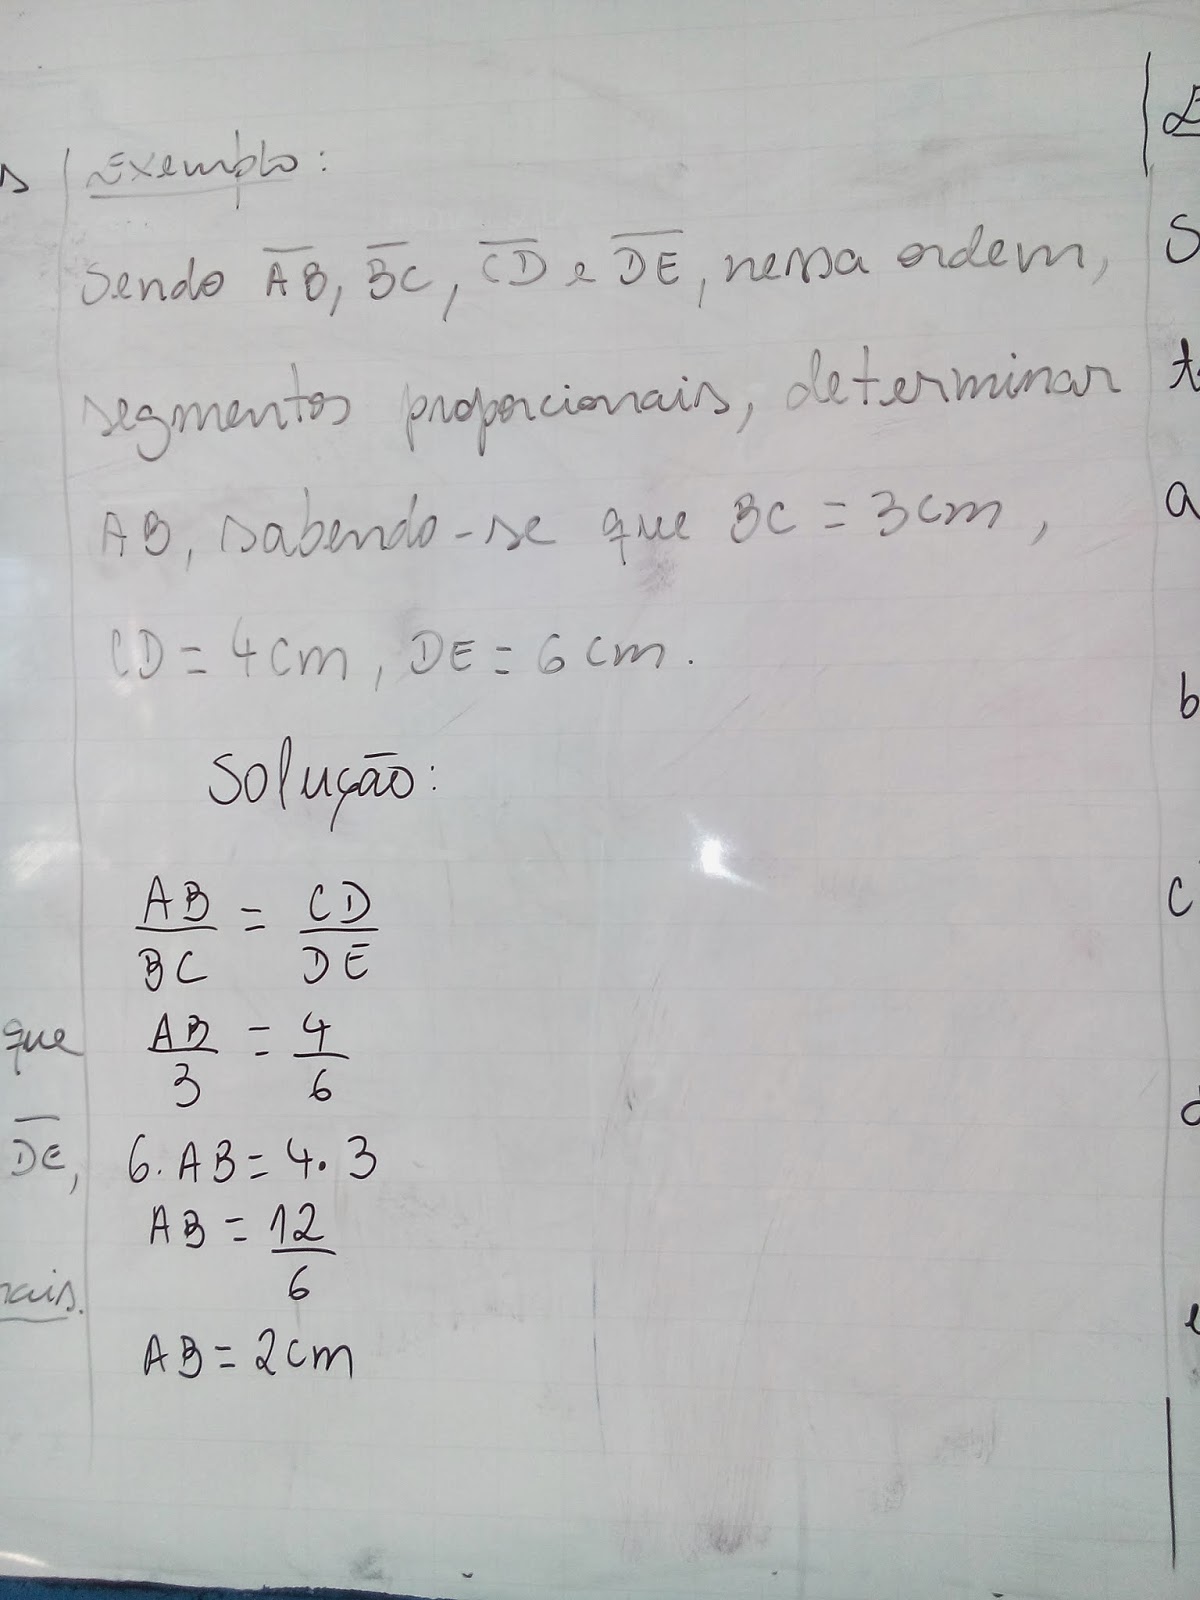 Exemplo:
Sendo A̅B̅, B̅C̅, C̅D̅ e D̅E̅, nessa ordem,
segmentos proporcionais, determinar
AB, sabendo-se que BC = 3cm,
CD = 4cm, DE = 6cm.
Solução:
AB/BC = CD/DE
AB/3 = 4/6
6. AB = 4.3
AB = 12/6
AB = 2cm
que
D̅E̅,